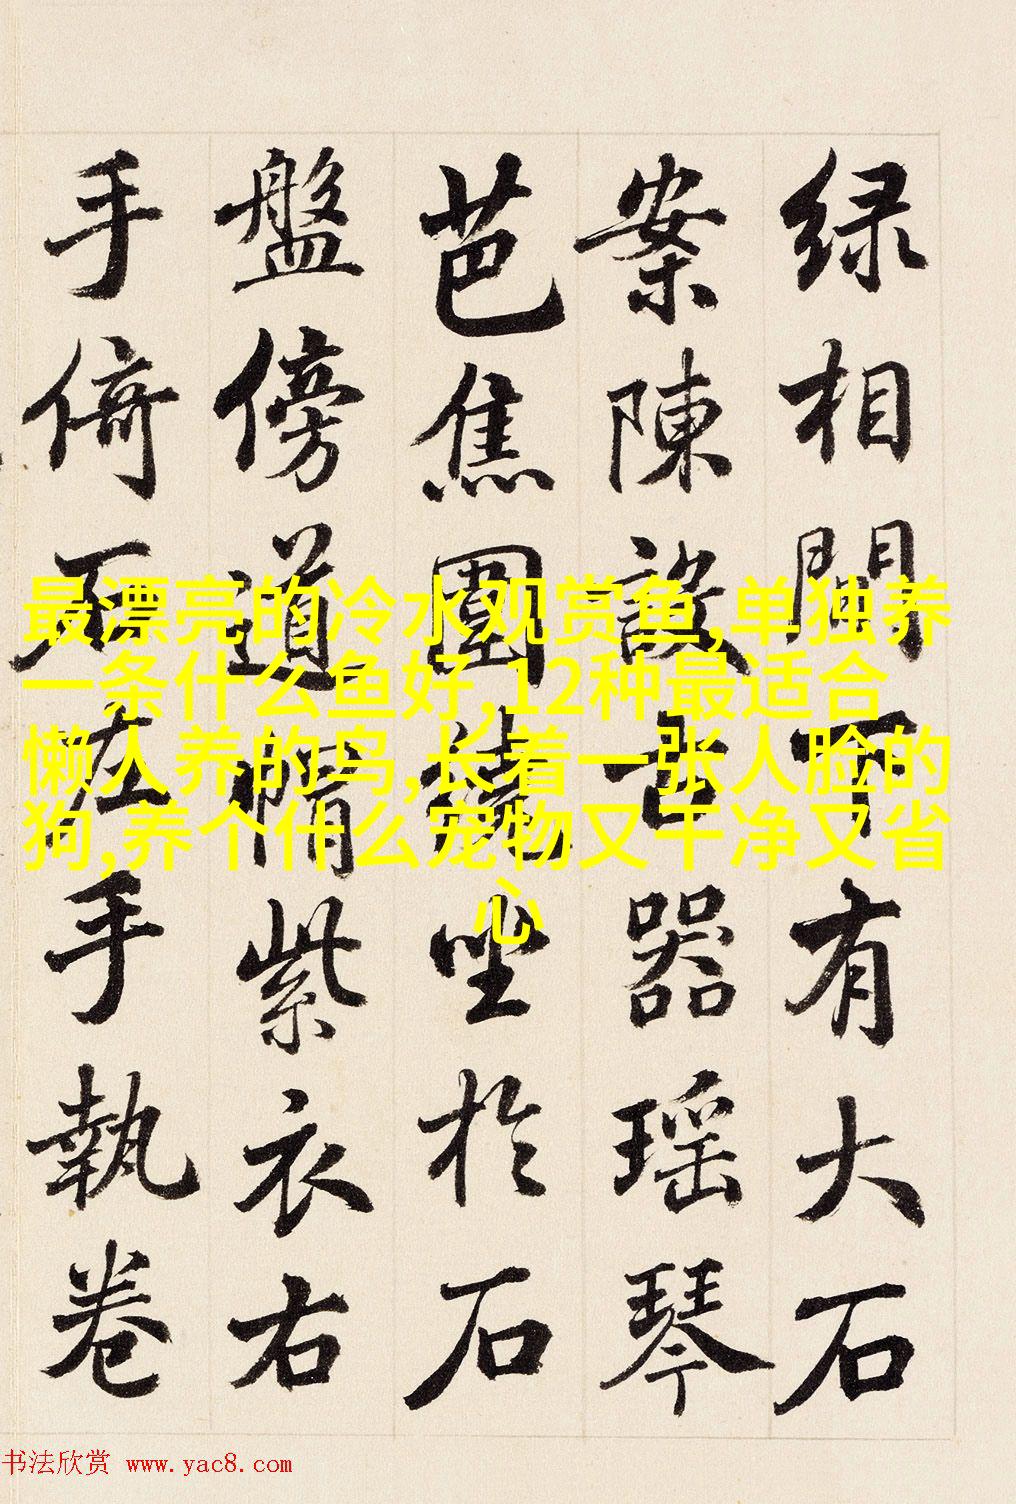 绿相間下有大石
案陳設古器瑶琴
芭焦圍繞坐於石
盤傍道帽紫衣右
手倚石左手執卷
最漂亮的冷水观赏鱼,单独养
一条什么鱼好,12种最适合
懒人养的鸟,长着一张人脸的
狗,养个什么宠物又干净又省
心
书法欣赏 www.yac8.com